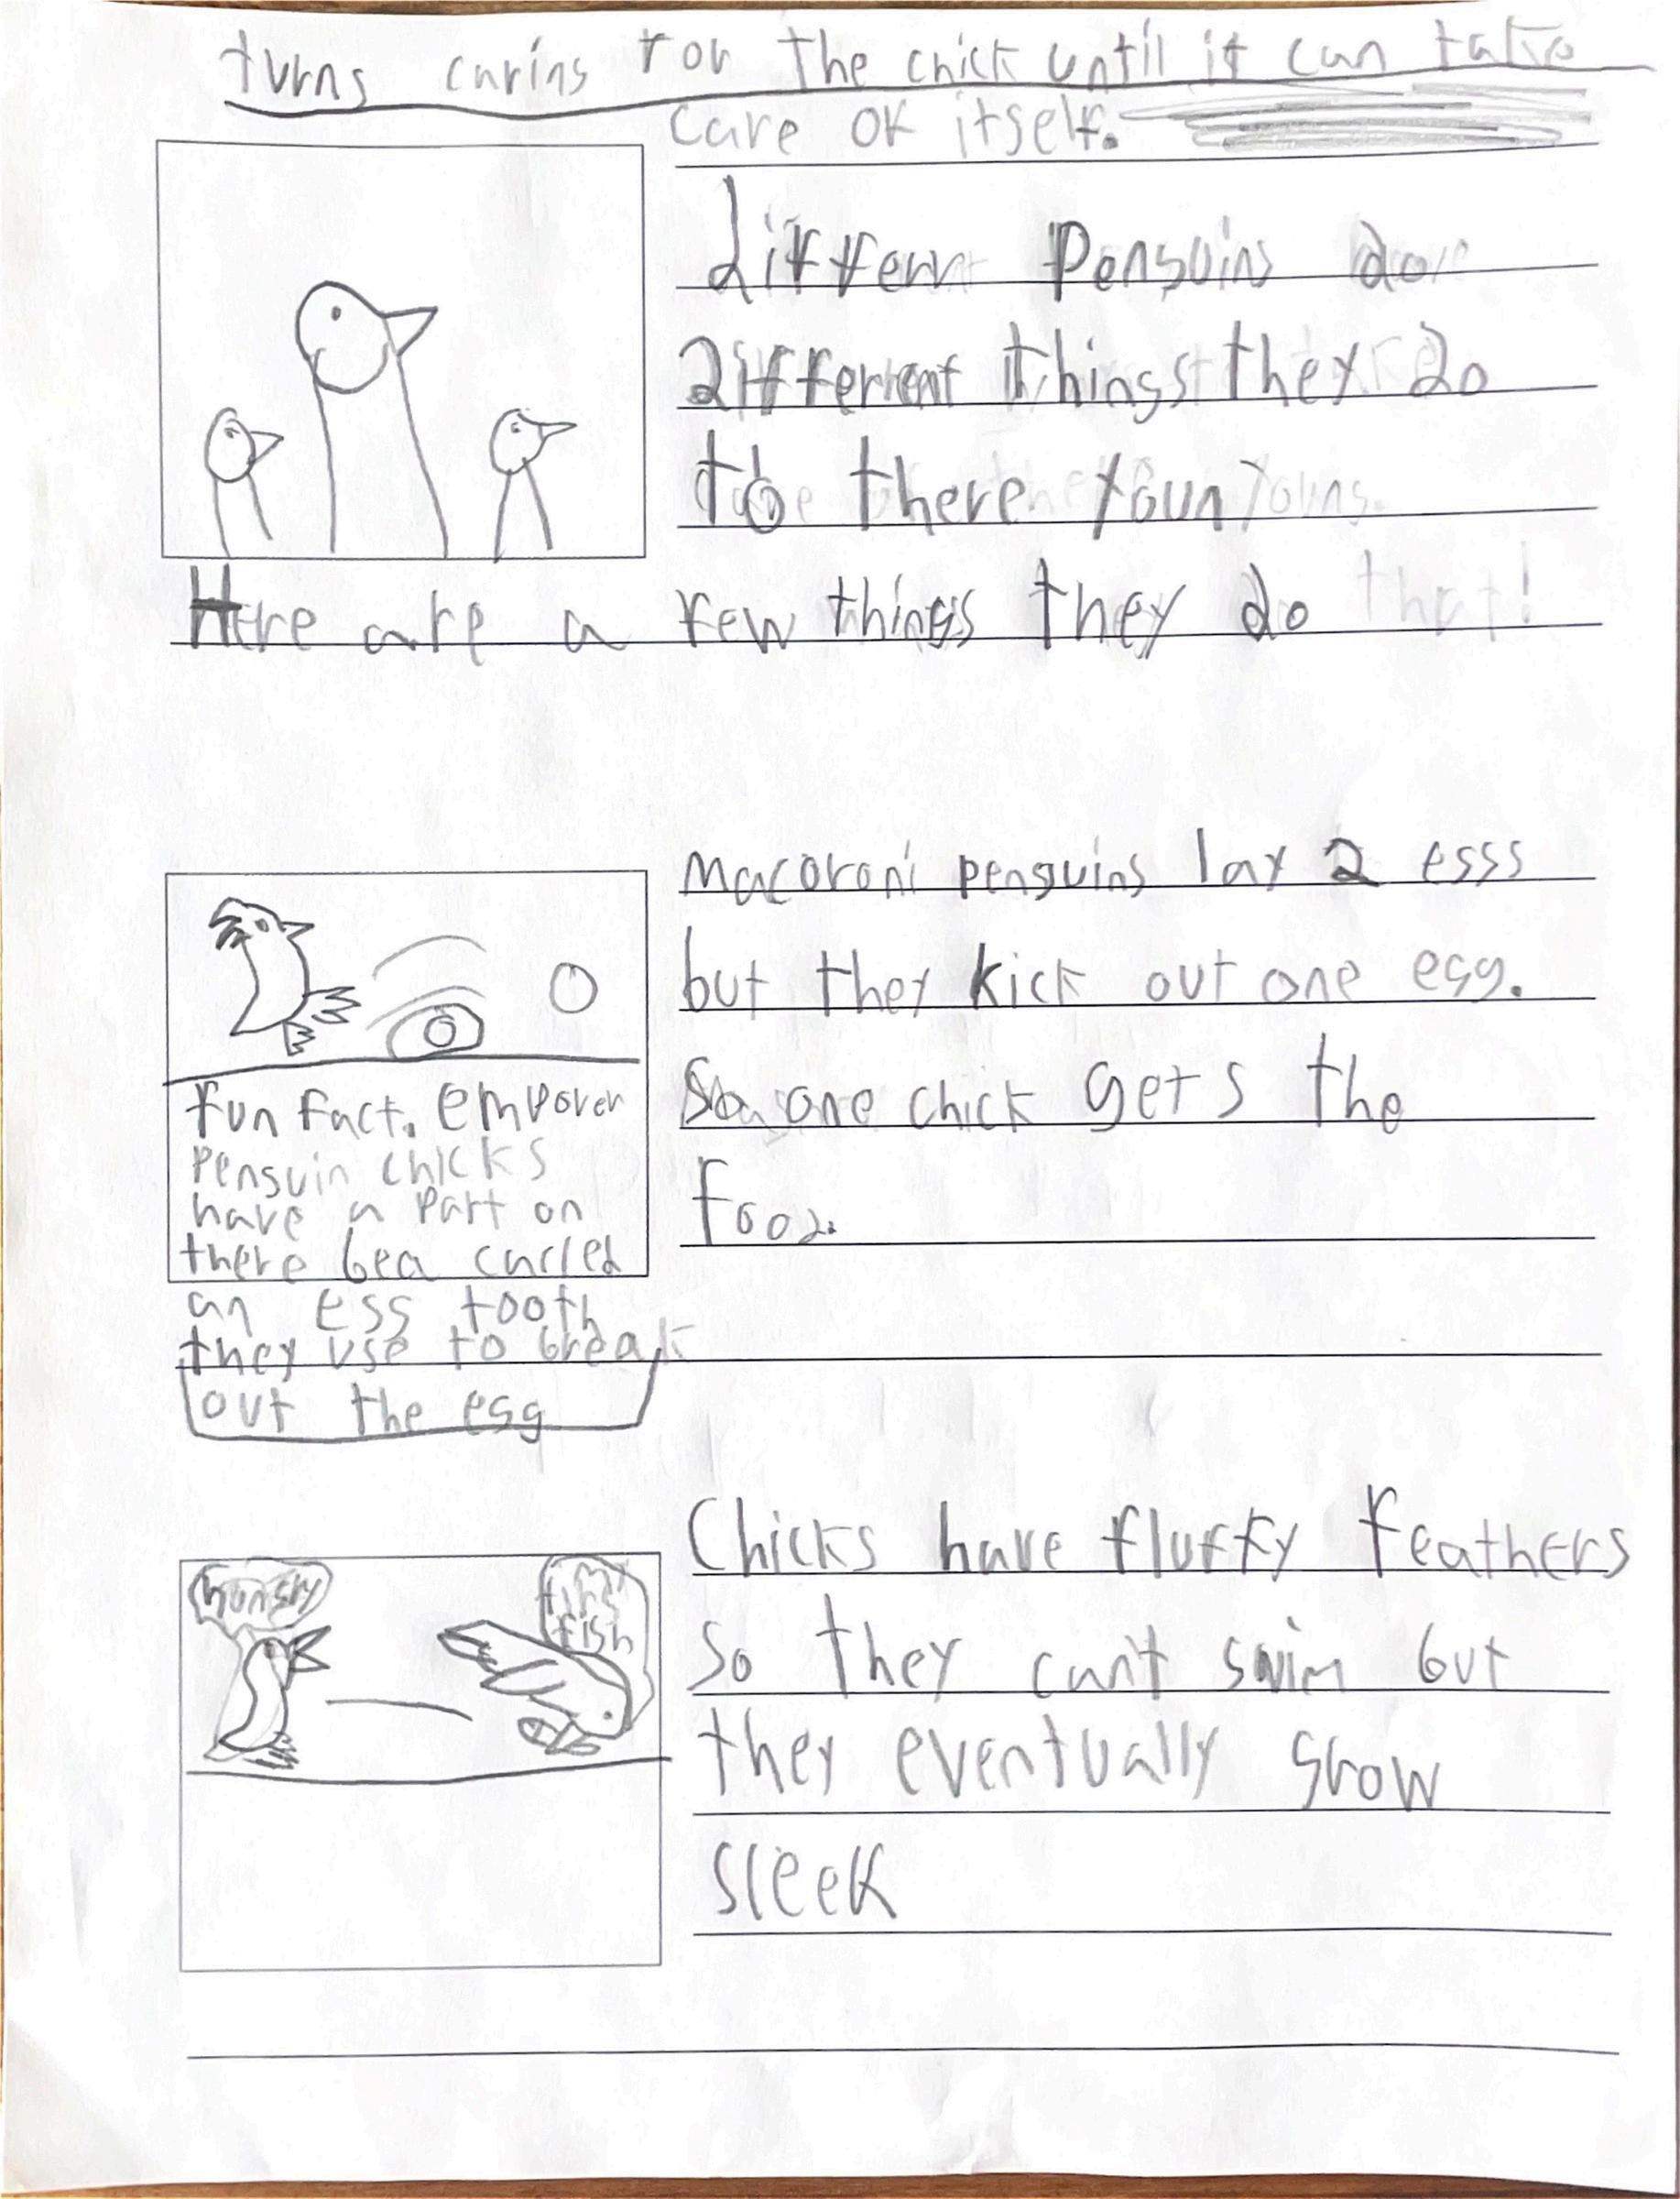 turns caring for the chick until it can take
care of itself.
differn penguins do
different things they do
to there youn
Here are a few things they do
Macoroni penguins lay 2 eggs
but they kick out one egg.
So one chick gets the
food.
fun fact. emporer
penguin chicks
have a part on
there bea called
an egg tooth
they use to break
out the egg
Chicks have fluffy feathers
so they can't swim but
they eventually grow
sleek
hungry
fish